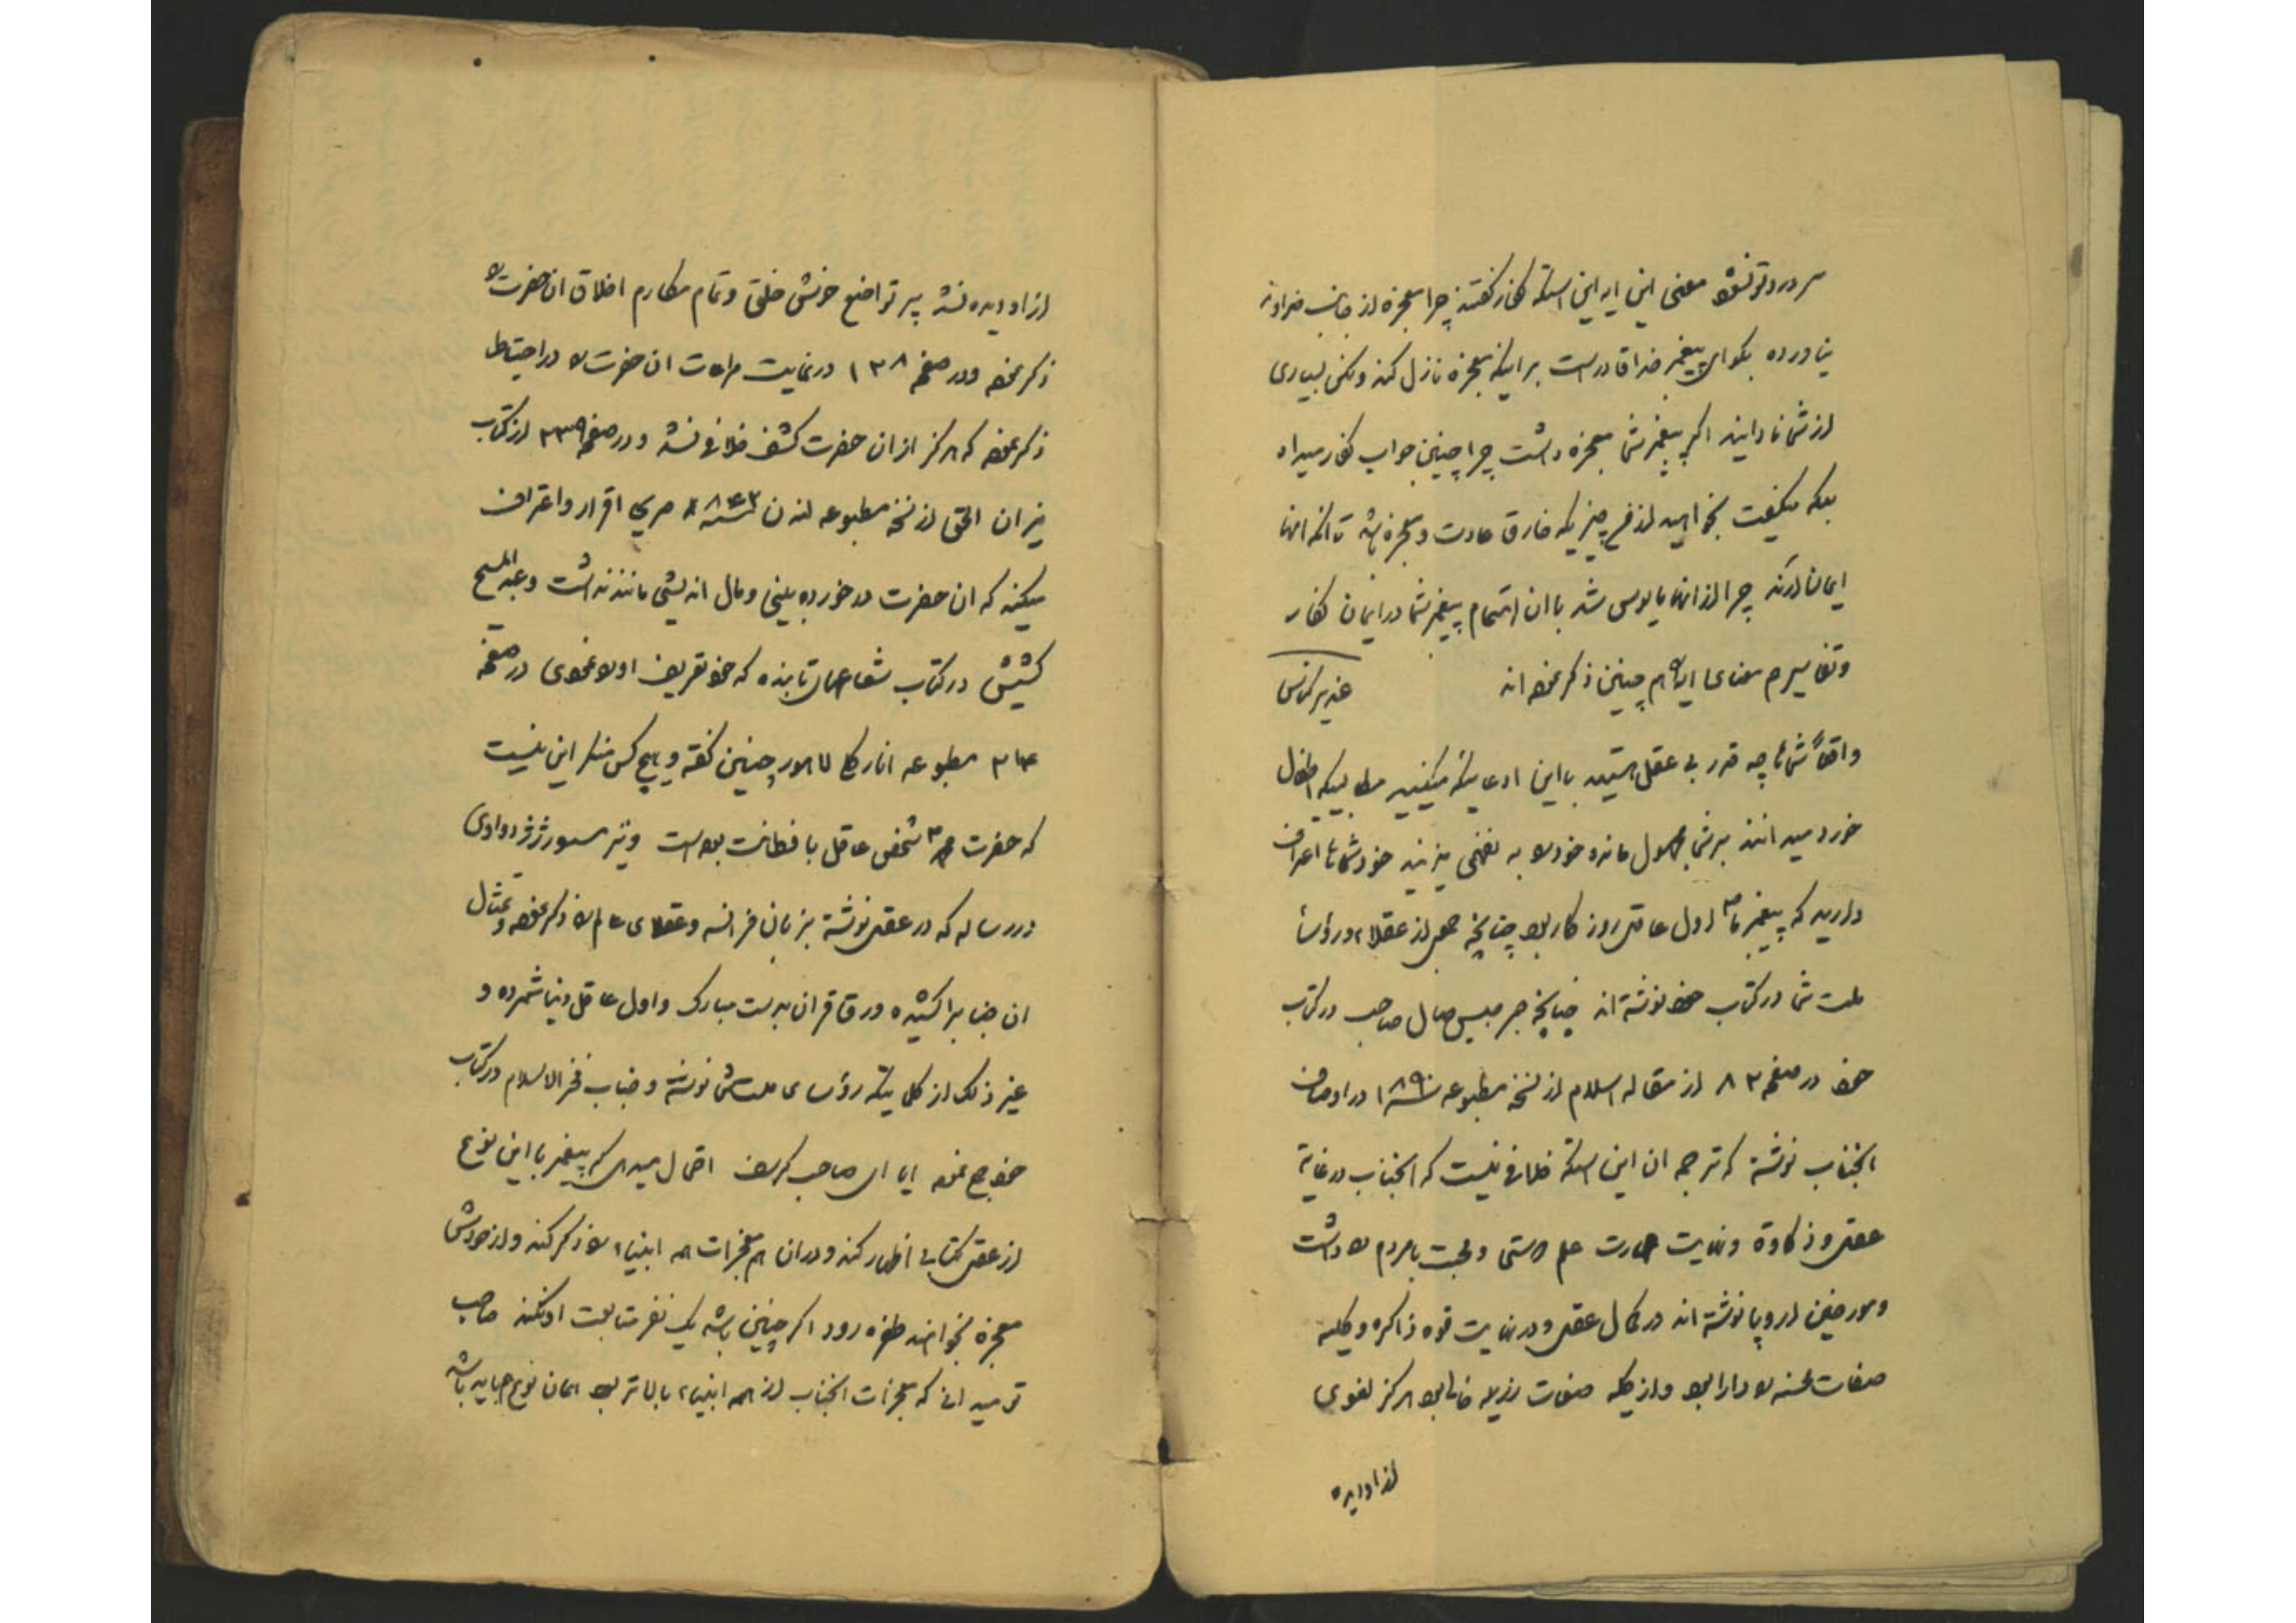 معنی این ایه این است که کفار گفتند چرا معجزه از جانب خداوند
نیاورده بگو ای پیغمبر خدا قادر است بر اینکه معجزه نازل کند ولکن بسیاری
از شما نادانید اگر پیغمبر شما معجزه داشت چرا چنین جواب کفار میداد
بلکه میگفت بخواهید از من هر چیزیکه خارق عادت و معجزه باشد تا آنکه آنها
ایمان اورند چرا از آنها مایوس شد با ان اهتمام پیغمبر شما در ایمان کفار
و تفاسیر هم معنای ایه را هم چنین ذکر نموده اند
واقعاً شماها چه قدر بی عقل هستید با این ادعائیکه میکنید مطالبیکه اطفال
خورد میدانند بر شما مجهول مانده و خود را به نفهمی میزنید خود شماها اعتراف
دارید که پیغمبر ما ص اول عاقل روزگار بود چنانچه جمعی از عقلاء و رؤساء
ملت شما در کتاب خود نوشته اند چنانچه جرجیس صال صاحب در کتاب
خود در صفحه ۸۳ از مقاله اسلام از نسخه مطبوعه سنه ۱۸۹۰ در اوصاف
انجناب نوشته که ترجمه ان این است که خلافی نیست که انجناب در غایة
عقل و ذکاوة و نهایت علم دوستی و محبت با مردم را داشت
و مورخین اروپا نوشته اند در کمال عقل و در نهایت قوه ذاکره و کلیه
صفات حسنه را دارا بود و از کلیه صفات رزیله خالی بود هرگز لغوی
از او دیده
از او دیده نشد پر تواضع خوش خلق و تمام مکارم اخلاق ان حضرت را
ذکر نموده و در صفحه ۱۳۸ در نهایت مراعات ان حضرت را در احتیاط
ذکر نموده که هرگز از ان حضرت کشف خلافی نشد و در صفحه ۳۳۹ از کتاب
میزان الحق از نسخه مطبوعه لندن سنه ۱۸۴۳ صریح اقرار و اعتراف
میکند که ان حضرت در خورده بینی و مال اندیشی مانند نداشت و عبد المسیح
کشیش در کتاب شعاعهای تابنده که خود تعریف او را نمودی در صفحه
۳۴ مطبوعه انارکلی لاهور چنین گفته و هیچ کس منکر این نیست
که حضرت محمد ص شخص عاقل با فطانت بوده است و نیز
در رساله که در عقل نوشته بزبان فرانسه و عقلای عالم را ذکر نموده و تمثال
ان جناب را کشیده ورق قران بدست مبارک و اول عاقل دنیا شمرده و
غیر ذلک از کلماتیکه رؤسای ملتش نوشته و جناب فخر الاسلام در کتاب
خود جمع نموده ایا ای صاحب احتمال میدهی که پیغمبر با این نوع
از عقل کتابی اظهار کند و در ان هم معجزات همه انبیاء را ذکر کند و از خودش
معجزه بخواهند طفره رود اگر چنین باشد یک نفر متابعت او نکند صاحب
تو میدانی که معجزات انجناب از همه انبیاء بالاتر بود همان نوع باید باشد